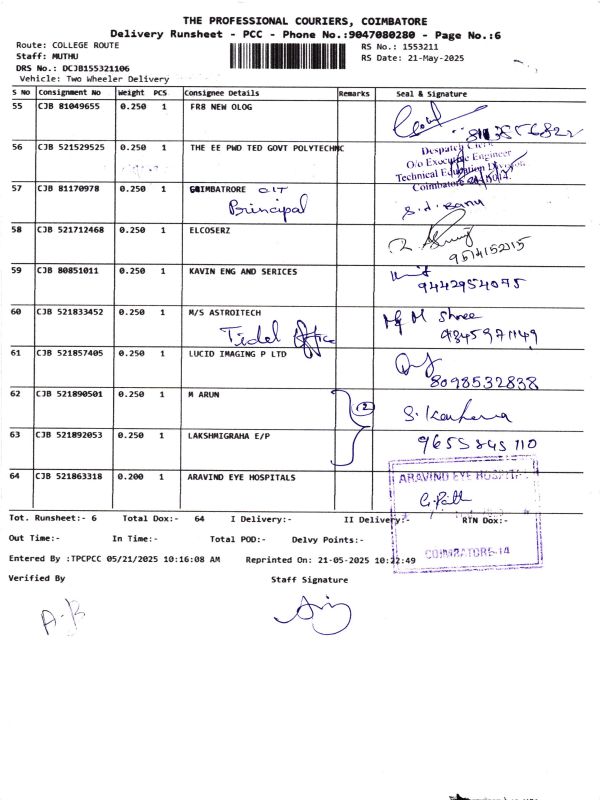 THE PROFESSIONAL COURIERS, COIMBATORE
Delivery Runsheet - PCC - Phone No.:9047080280 - Page No.:6
Route: COLLEGE ROUTE RS No.: 1553211
Staff: MUTHU RS Date: 21-May-2025
DRS No.: DCJB155321106
Vehicle: Two Wheeler Delivery
S No Consignment No Weight PCS Consignee Details Remarks Seal & Signature
55 CJB 81049655 0.250 1 FR8 NEW OLOG
56 CJB 521529525 0.250 1 THE EE PWD TED GOVT POLYTECHNC
Despatch Clerk
O/o Executive Engineer
Technical Education Division
Coimbatore
57 CJB 81170978 0.250 1 COIMBATRORE CIT
Principal S.J. Banu
58 CJB 521712468 0.250 1 ELCOSERZ
9514152215
59 CJB 80851011 0.250 1 KAVIN ENG AND SERICES
9442954075
60 CJB 521833452 0.250 1 M/S ASTROITECH
Tidel Office M Shree
9345971149
61 CJB 521857405 0.250 1 LUCID IMAGING P LTD
8098532838
62 CJB 521890501 0.250 1 M ARUN
2
63 CJB 521892053 0.250 1 LAKSHMIGRAHA E/P 9655845110
64 CJB 521863318 0.200 1 ARAVIND EYE HOSPITALS
ARAVIND EYE HOSPITAL
COIMBATORE-14
Tot. Runsheet:- 6 Total Dox:- 64 I Delivery:- II Delivery:- RTN Dox:-
Out Time:- In Time:- Total POD:- Delvy Points:-
Entered By :TPCPCC 05/21/2025 10:16:08 AM Reprinted On: 21-05-2025 10:22:49
Verified By Staff Signature
A-B